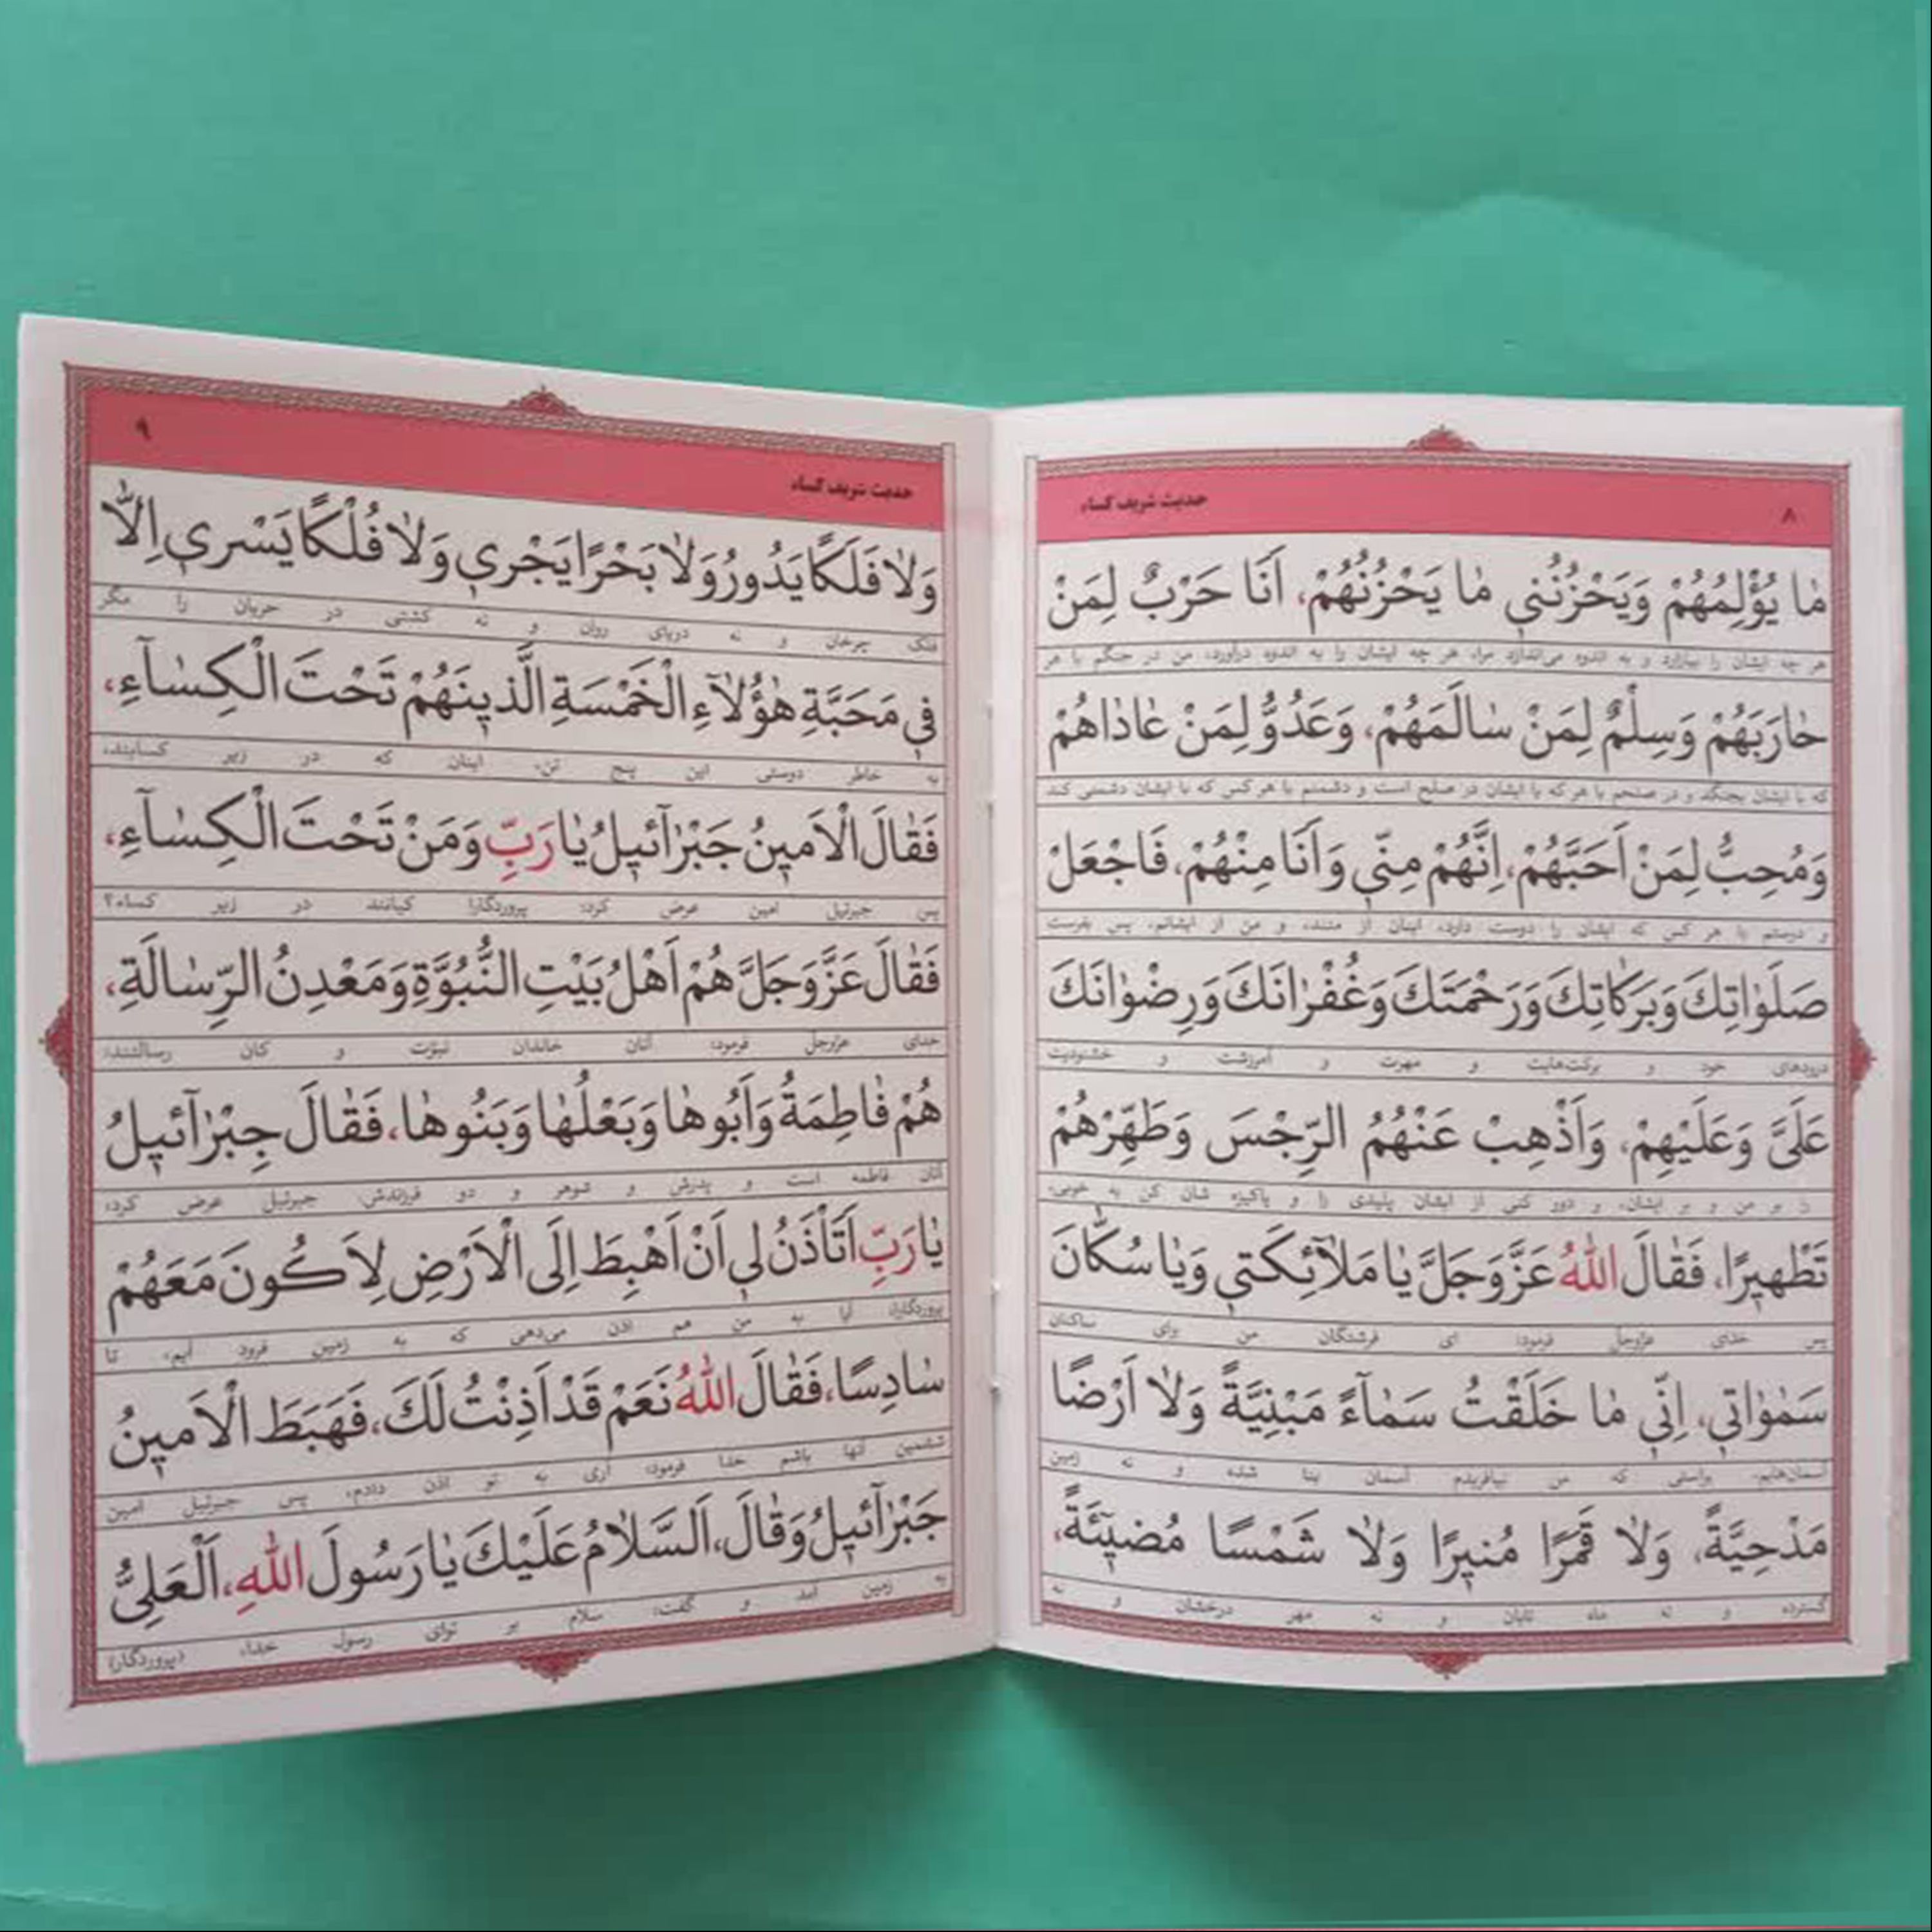 ۸
حدیث شریف کساء
مٰا يُؤْلِمُهُمْ وَيَحْزُنُني مٰا يَحْزُنُهُمْ، اَنَا حَرْبٌ لِمَنْ
هر چه ایشان را بیازارد و به اندوه می‌اندازد مرا، هر چه ایشان را به اندوه درآورد، من در جنگم با هر
حٰارَبَهُمْ وَسِلْمٌ لِمَنْ سٰالَمَهُمْ، وَعَدُوٌّ لِمَنْ عٰادٰاهُمْ
که با ایشان بجنگد و در صلحم با هر که با ایشان در صلح است و دشمنم با هر کس که با ایشان دشمنی کند
وَمُحِبٌّ لِمَنْ اَحَبَّهُمْ، اِنَّهُمْ مِنّي وَاَنَا مِنْهُمْ، فَاجْعَلْ
و دوستم با هر کس که ایشان را دوست دارد، اینان از منند، و من از ایشانم، پس بفرست
صَلَوٰاتِكَ وَبَرَكٰاتِكَ وَرَحْمَتَكَ وَغُفْرٰانَكَ وَرِضْوٰانَكَ
درودهای خود و برکت‌هایت و مهرت و آمرزشت و خشنودیت
عَلَيَّ وَعَلَيْهِمْ، وَاَذْهِبْ عَنْهُمُ الرِّجْسَ وَطَهِّرْهُمْ
بر من و بر ایشان، و دور کنی از ایشان پلیدی را و پاکیزه شان کن به خوبی،
تَطْهيرًا، فَقٰالَ اللّٰهُ عَزَّوَجَلَّ يٰا مَلٰٓائِكَتي وَيٰا سُكّٰانَ
پس خدای عزوجلّ فرمود: ای فرشتگان من برای ساکنان
سَمٰوٰاتي، اِنّي مٰا خَلَقْتُ سَمٰآءً مَبْنِيَّةً وَلٰا اَرْضًا
آسمان‌هایم، براستی که من نیافریدم آسمان بنا شده و نه زمین
مَدْحِيَّةً، وَلٰا قَمَرًا مُنيرًا وَلٰا شَمْسًا مُضيٓئَةً،
گسترده و نه ماه تابان و نه مهر درخشان و نه
۹
حدیث شریف کساء
وَلٰا فَلَكًا يَدُورُ وَلٰا بَحْرًا يَجْري وَلٰا فُلْكًا يَسْري اِلّٰا
فلک چرخان و نه دریای روان و نه کشتی در جریان را مگر
في مَحَبَّةِ هٰؤُلٰآءِ الْخَمْسَةِ الَّذينَهُمْ تَحْتَ الْكِسٰآءِ،
به خاطر دوستی این پنج تن، اینان که در زیر کسایند،
فَقٰالَ الْاَمينُ جَبْرٰآئيلُ يٰا رَبِّ وَمَنْ تَحْتَ الْكِسٰآءِ،
پس جبرئیل امین عرض کرد: پروردگارا کیانند در زیر کساء؟
فَقٰالَ عَزَّوَجَلَّ هُمْ اَهْلُ بَيْتِ النُّبُوَّةِ وَمَعْدِنُ الرِّسٰالَةِ،
خدای عزوجلّ فرمود: آنان خاندان نبوّت و کان رسالتند:
هُمْ فٰاطِمَةُ وَاَبُوهٰا وَبَعْلُهٰا وَبَنُوهٰا، فَقٰالَ جِبْرٰآئيلُ
آنان فاطمه است و پدرش و شوهر و دو فرزندش، جبرئیل عرض کرد:
يٰا رَبِّ اَتَأْذَنُ لي اَنْ اَهْبِطَ اِلَى الْاَرْضِ لِاَكُونَ مَعَهُمْ
پروردگارا، آیا به من هم اذن می‌دهی که به زمین فرود آیم، تا
سٰادِسًا، فَقٰالَ اللّٰهُ نَعَمْ قَدْ اَذِنْتُ لَكَ، فَهَبَطَ الْاَمينُ
ششمین آنها باشم خدا فرمود: آری به تو اذن دادم، پس جبرئیل امین
جَبْرٰآئيلُ وَقٰالَ، اَلسَّلٰامُ عَلَيْكَ يٰا رَسُولَ اللّٰهِ، اَلْعَلِيُّ
به زمین آمد و گفت: سلام بر تو ای رسول خدا، (پروردگار)